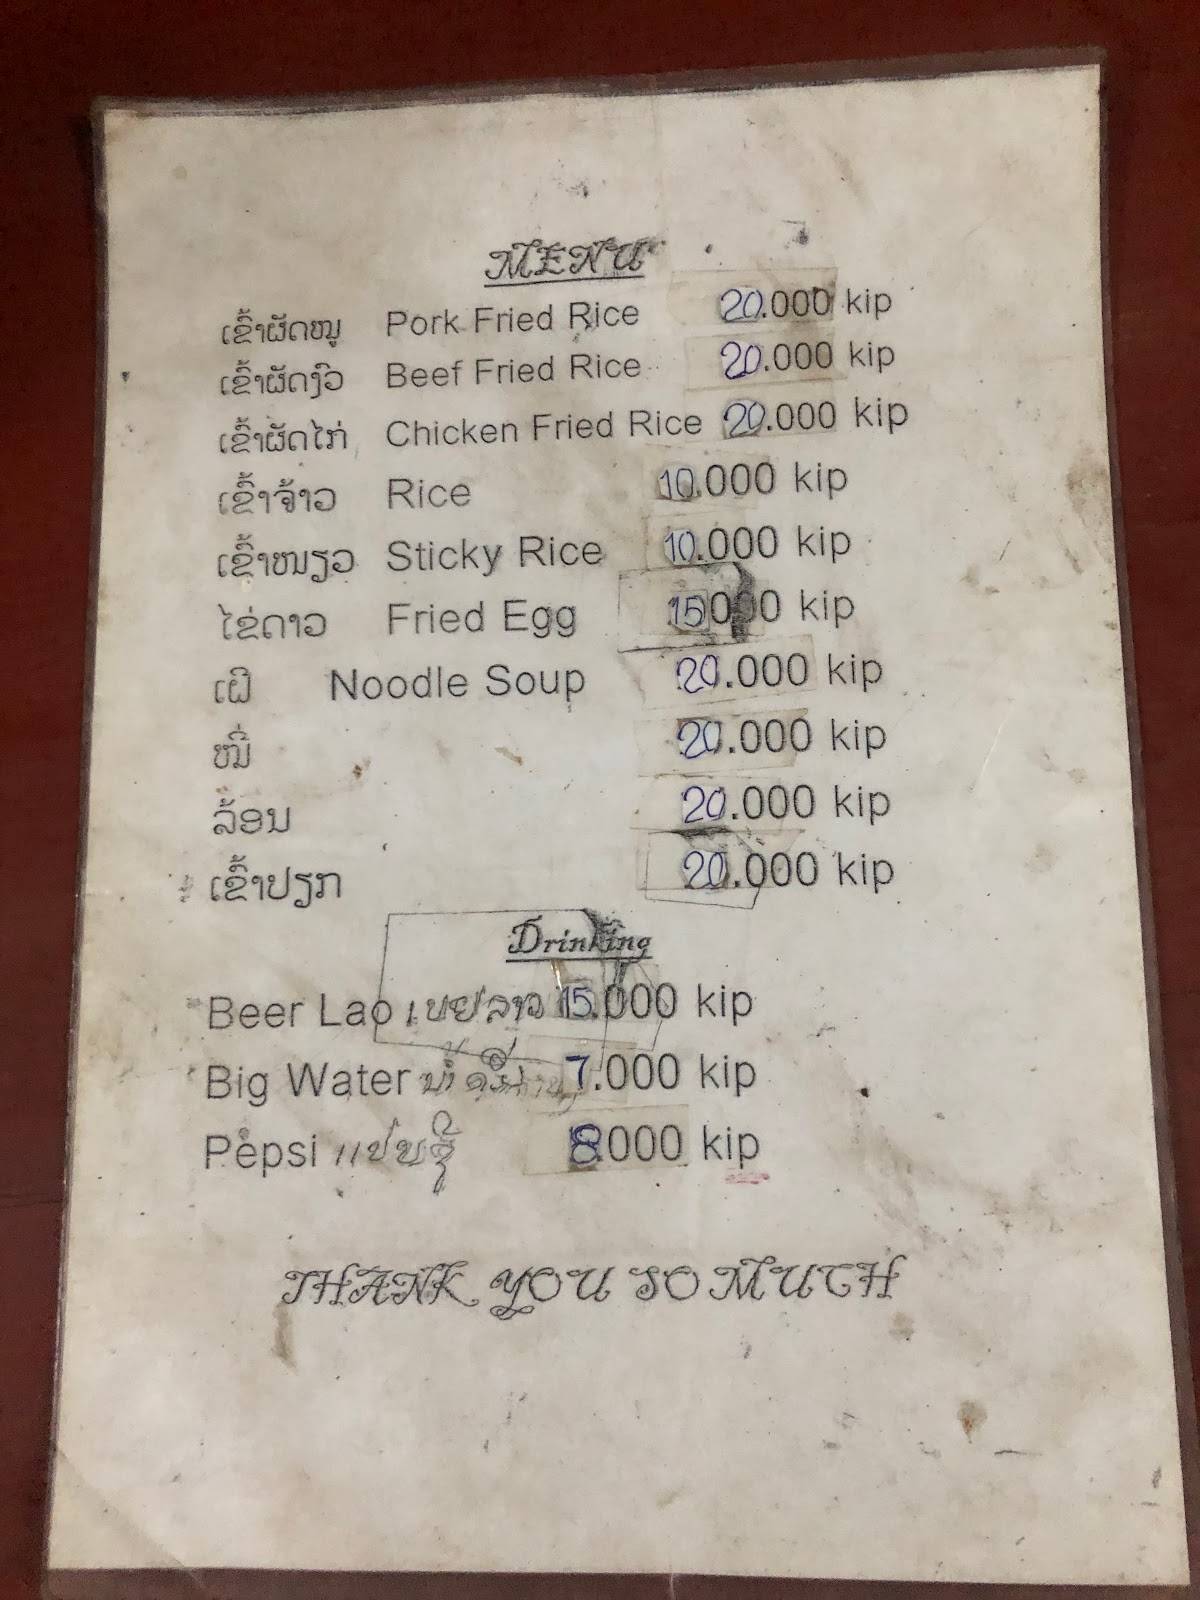 MENU
ເຂົ້າຜັດໝູ Pork Fried Rice 20.000 kip
ເຂົ້າຜັດງົວ Beef Fried Rice 20.000 kip
ເຂົ້າຜັດໄກ່ Chicken Fried Rice 20.000 kip
ເຂົ້າຈ້າວ Rice 10.000 kip
ເຂົ້າໜຽວ Sticky Rice 10.000 kip
ໄຂ່ດາວ Fried Egg 15000 kip
ເຝີ Noodle Soup 20.000 kip
ໝີ່ 20.000 kip
ລ້ອນ 20.000 kip
ເຂົ້າປຽກ 20.000 kip
Drinking
Beer Lao ເບຢລາວ 15.000 kip
Big Water ນ້ຳ 7.000 kip
Pepsi ແປບຊີ 8.000 kip
THANK YOU SO MUCH